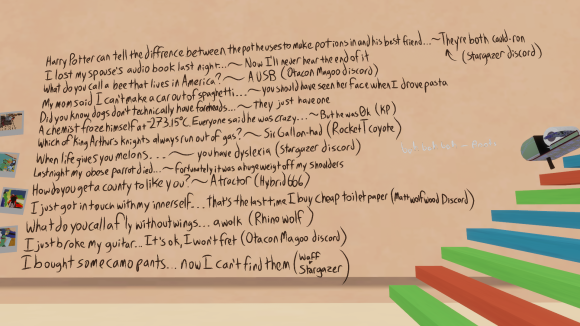 Harry Potter can tell the diffrence between the pot he uses to make potions in and his best friend... ~ They're both cauld-ron
(Stargazer discord)
I lost my spouse's audio book last night... ~ Now I'll never hear the end of it
What do you call a bee that lives in America? ~ A USB (Otacon Magoo discord)
My mom said I can't make a car out of spaghetti... ~ you should have seen her face when I drove pasta
Did you know dogs don't technically have ~ They just have one
A chemist froze himself at -273.15°C. Everyone said he was crazy... ~ But he was 0k (KP)
Which of King Arthur's knights always run out of gas? ~ Sir Gallon-had (RocketTcoyote)
When life gives you melons... ~ you have dyslexia (Stargazer discord)
Last night my obese parrot died... ~ Fortunately it was a huge weight off my shoulders
How do you get a county to like you? ~ A tractor (Hybrid666)
I just got in touch with my innerself... That's the last time I buy cheap toilet paper (Mattwolfwood Discord)
What do you call a fly without wings... a walk (Rhino wolf)
I just broke my guitar... It's ok, I won't fret (Otacon Magoo discord)
I bought some camo pants... now I can't find them (Waff Stargazer)